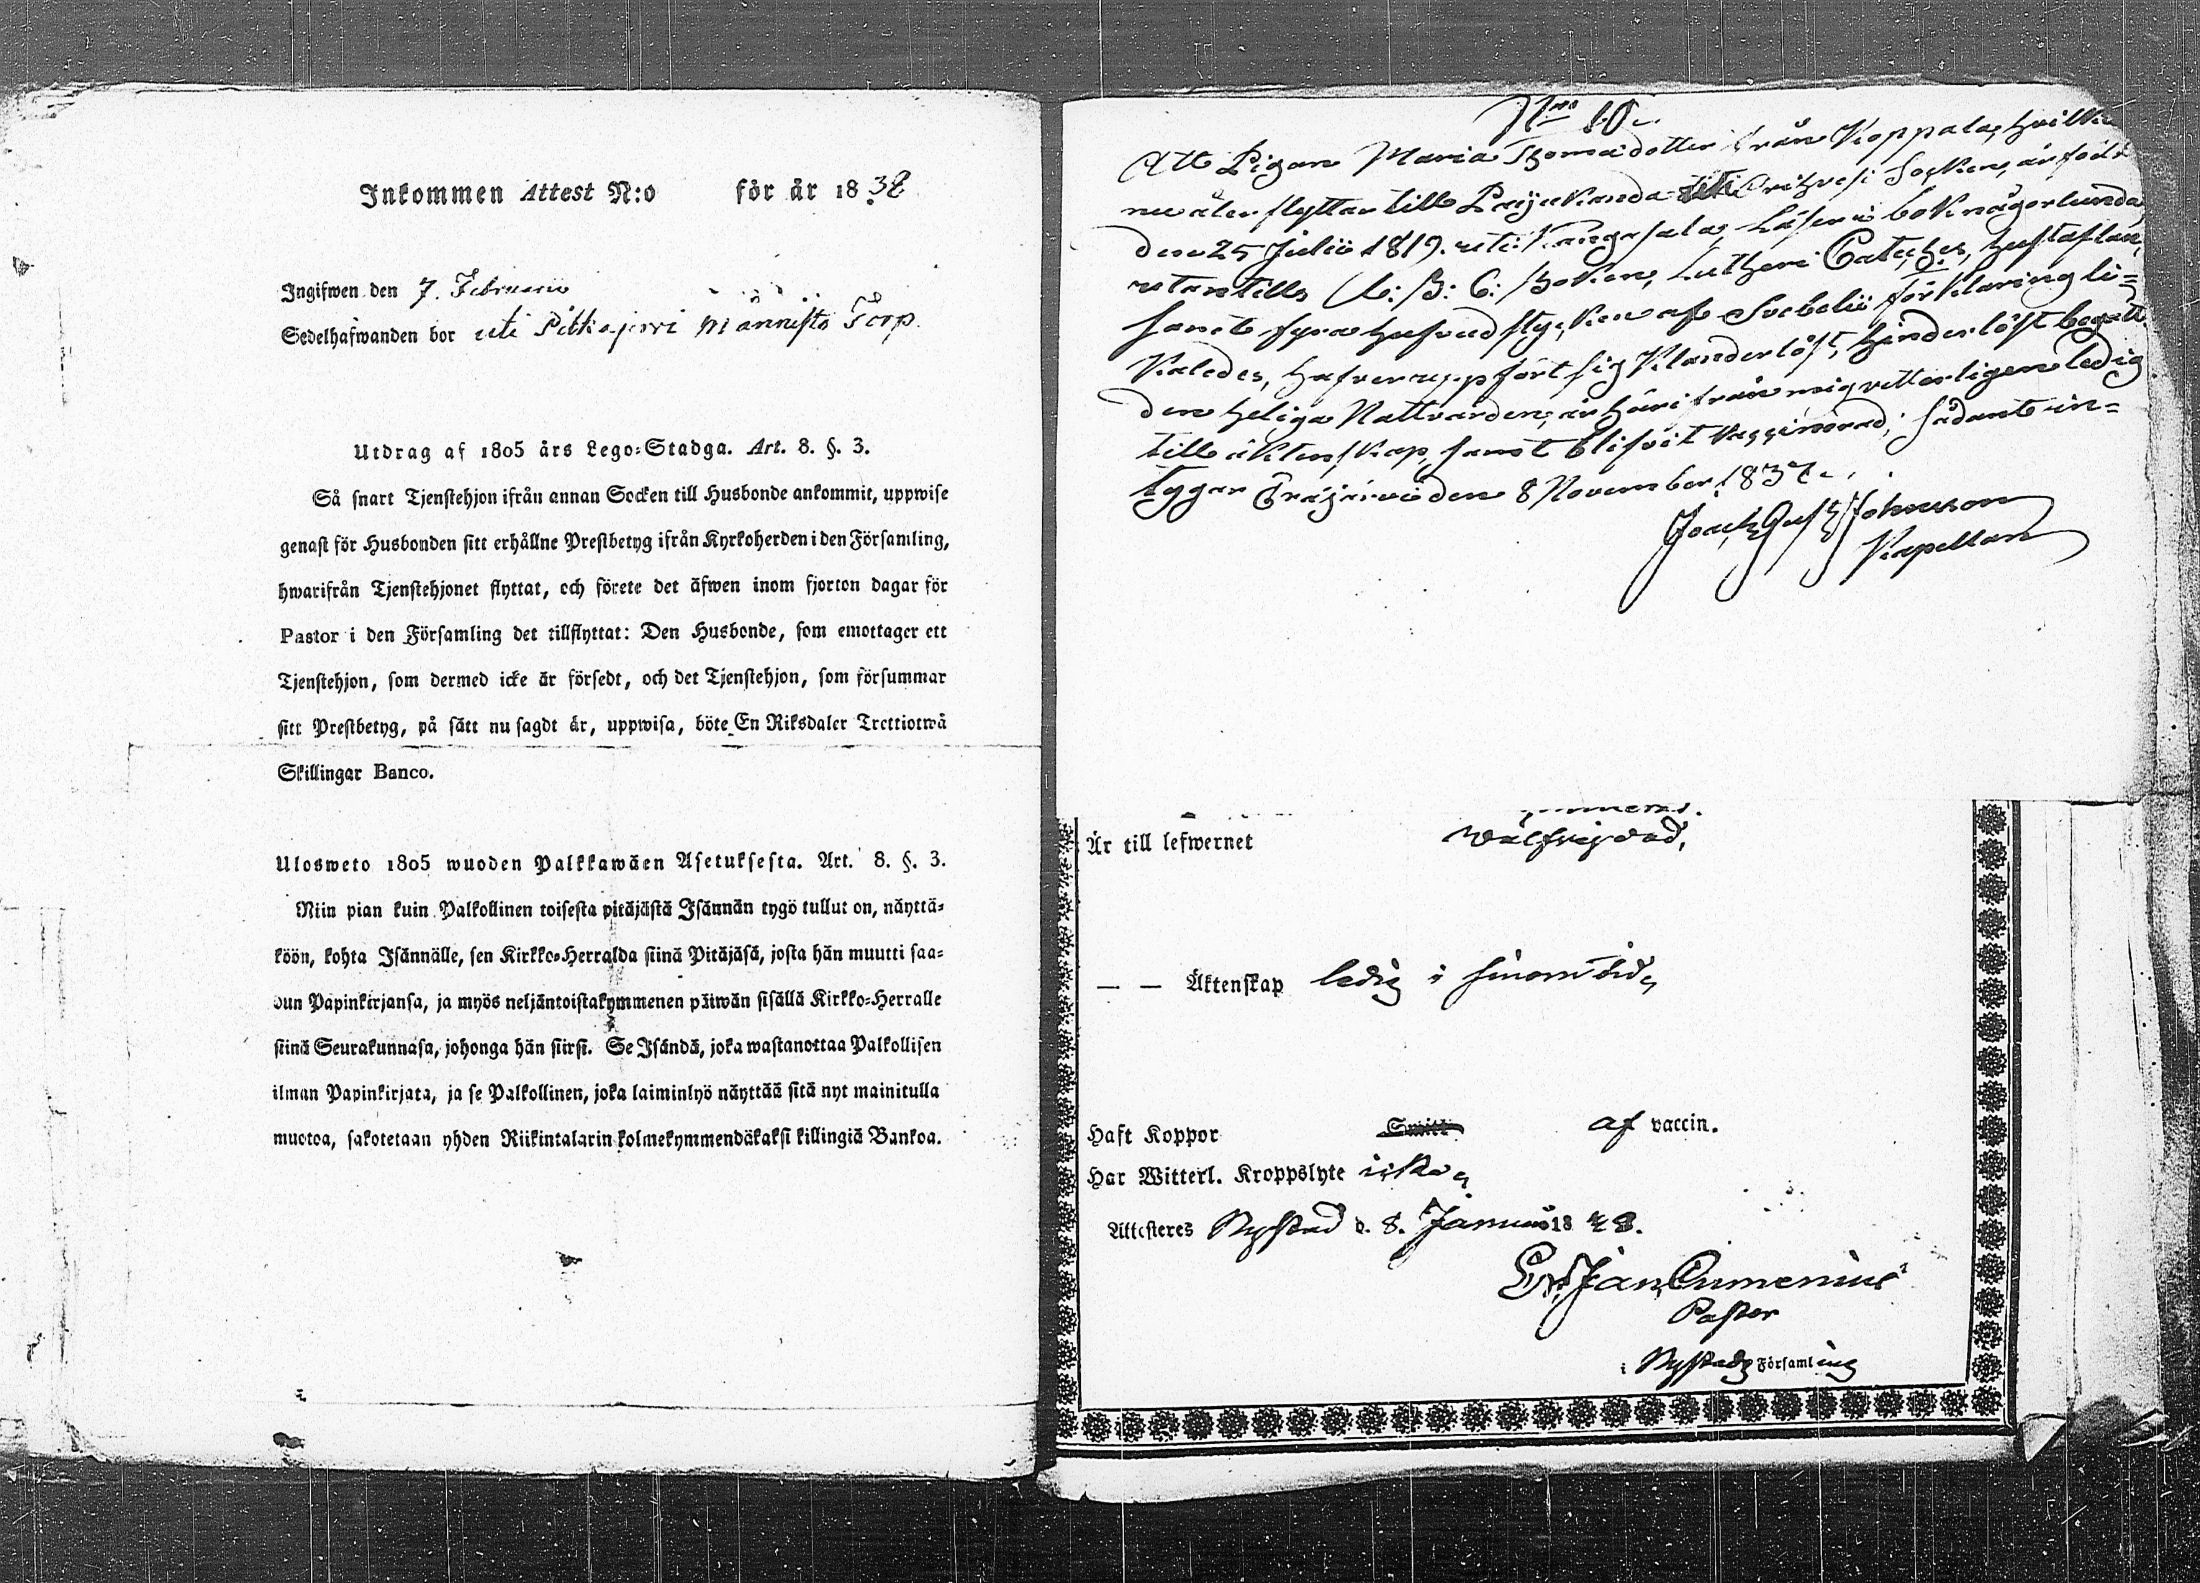 Inkommen Attest N:o för år 1838
Ingifwen den 7. Februarii
Sedelhafwanden bor uti Pitkajerwi Männistö Torp.
Utdrag af 1805 års Lego-Stadga. Art. 8. §. 3.
Så snart Tjenstehjon ifrån annan Socken till Husbonde ankommit, uppwise
genast för Husbonden sitt erhållne Prestbetyg ifrån Kyrkoherden i den Församling,
hwarifrån Tjenstehjonet flyttat, och förete det äfwen inom fjorton dagar för
Pastor i den Församling det tillflyttat: Den Husbonde, som emottager ett
Tjenstehjon, som dermed icke är försedt, och det Tjenstehjon, som försummar
sitt Prestbetyg, på sätt nu sagdt är, uppwisa, böte En Riksdaler Trettiotwå
Skillingar Banco.
Ulosweto 1805 wuoden Palkkawäen Asetuksesta. Art. 8. §. 3.
Niin pian kuin Palkollinen toisesta pitäjästä Isännän tygö tullut on, näyttä-
köön, kohta Isännälle, sen Kirkko-Herralda siinä Pitäjäsä, josta hän muutti saa-
dun Papinkirjansa, ja myös neljäntoistakymmenen päiwän sisällä Kirkko-Herralle
siinä Seurakunnasa, johonga hän siirsi. Se Isändä, joka wastanottaa Palkollisen
ilman Papinkirjata, ja se Palkollinen, joka laiminlyö näyttää sitä nyt mainitulla
muotoa, sakotetaan yhden Riikintalarin kolmekymmendäkaksi killingiä Bankoa.
N:ro 10.
Att Pigan Maria Thomädotter från Koppala, hvilken
nu åter flyttar till Pajukanda uti Orihvesi Socken, är född
den 25 Julii 1819. uti Kangasala, Läser i bok någorlunda
utantill A: B: C: Boken, Lutheri Cateches, Hustaflan,
samt fyra hufvudstycken af Svebelii förklaring li-
kaledes, hafver uppfört sig klanderlöst, hinderlöst begått
den heliga Nattvarden, är härifrån mig vetterligen ledig
till äktenskap, samt blifvit vaccinerad; sådant in-
tygar Träijärvi den 8 November 1837.
Joach Gust Johnsson
Kapellan
Är till lefwernet wälfrejdad,
— — Äktenskap ledig i sinom tid,
Haft Koppor Smitt af vaccin.
Har Witterl. Kroppslyte icke,
Attesteres Nystad d. 8. Januarii 1828.
Pastor
i Nystads Församling